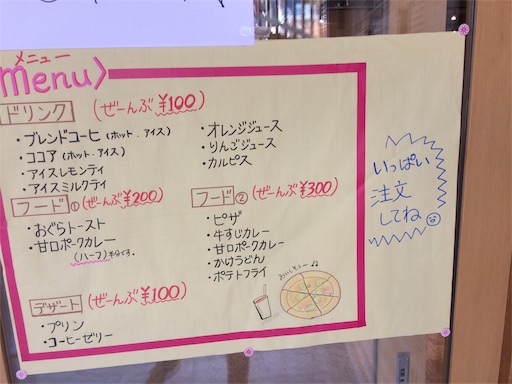 メニュー
menu
ドリンク (ぜーんぶ ¥100)
・ブレンドコーヒ (ホット.アイス)
・ココア (ホット.アイス)
・アイスレモンティ
・アイスミルクティ
・オレンジジュース
・りんごジュース
・カルピス
フード① (ぜーんぶ ¥200)
・おぐらトースト
・甘口ポークカレー
(ハーフ)半分です。
フード② (ぜーんぶ ¥300)
・ピザ
・牛すじカレー
・甘口ポークカレー
・かけうどん
・ポテトフライ
おいしそう〜♫
デザート (ぜーんぶ ¥100)
・プリン
・コーヒーゼリー
いっぱい
注文
してね